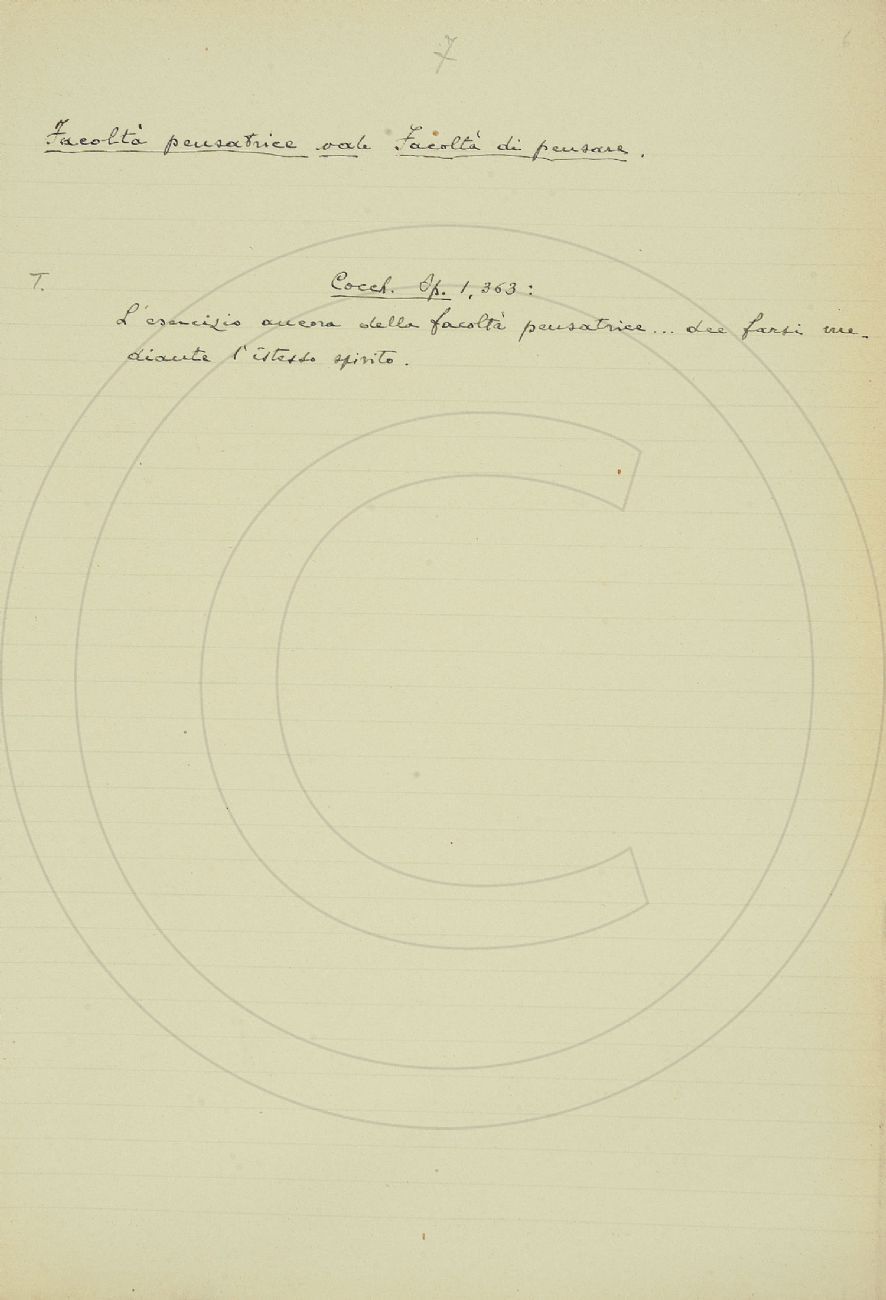 7
6
Facoltà pensatrice vale Facoltà di pensare.
T. Cocch. Op. 1, 363:
L'esercizio ancora della facoltà pensatrice... dee farsi me-
diante l'istesso spirito.